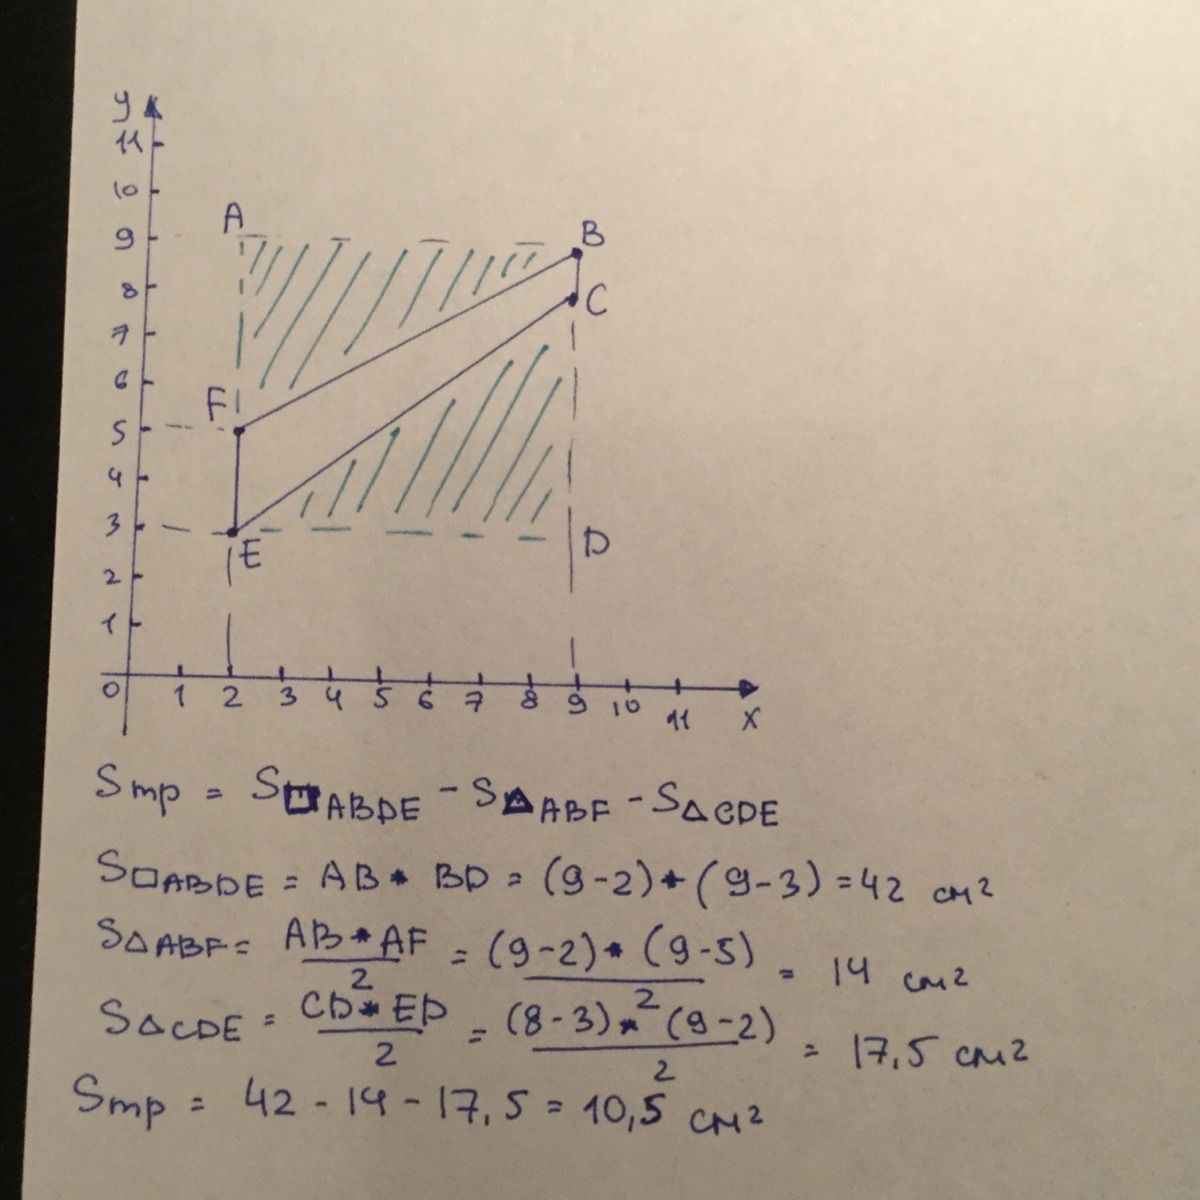 y
11
10
A
9
B
8
C
7
6
F
5
4
3
D
E
2
1
0 1 2 3 4 5 6 7 8 9 10 11 x
Sтр = S□ABDE - S△ABF - S△CDE
S□ABDE = AB * BD = (9-2)*(9-3) = 42 см²
S△ABF = AB * AF / 2 = (9-2)*(9-5) / 2 = 14 см²
S△CDE = CD * ED / 2 = (8-3)*(9-2) / 2 = 17,5 см²
Sтр = 42 - 14 - 17,5 = 10,5 см²